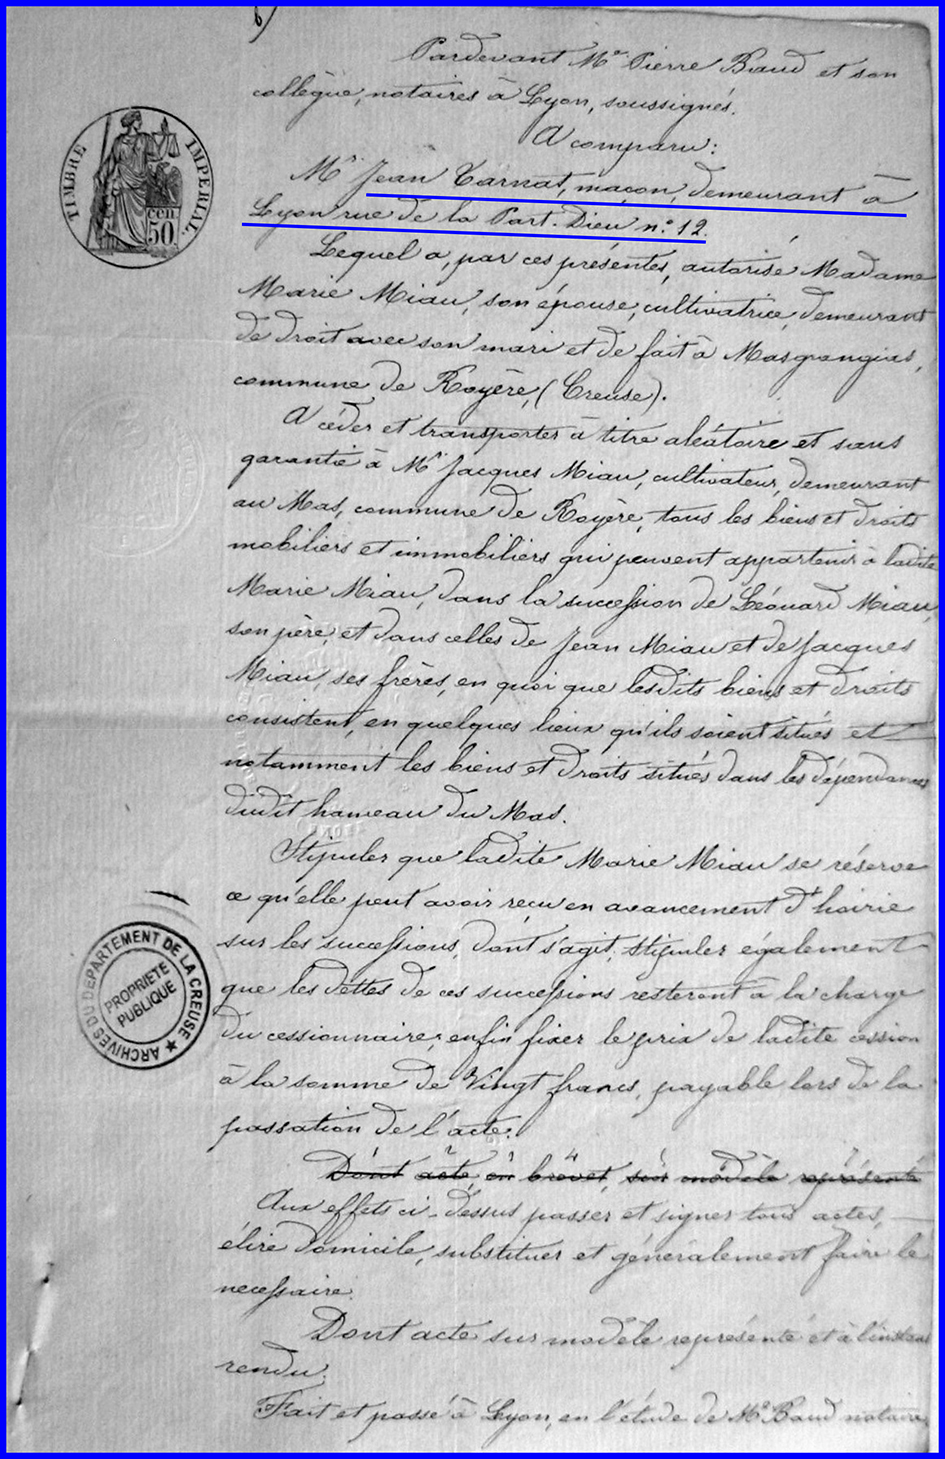 6)
Pardevant Me Pierre Baud et son
collègue, notaires à Lyon, soussignés.
A comparu:
TIMBRE IMPERIAL.
cen 50.
Mr Jean Tarnat, maçon, demeurant à
Lyon rue de la Part-Dieu n°. 12.
Lequel a, par ces présentes, autorisé Madame
Marie Miau, son épouse, cultivatrice, demeurant
de droit avec son mari et de fait à Masgrangias,
commune de Royère, (Creuse).
A céder et transporter à titre aléatoire et sans
garantie à Mr Jacques Miau, cultivateur, demeurant
au Mas, commune de Royère, tous les biens et droits
mobiliers et immobiliers qui peuvent appartenir à ladite
Marie Miau, dans la succession de Léonard Miau,
son père, et dans celles de Jean Miau et de Jacques
Miau, ses frères, en quoi que lesdits biens et droits
consistent, en quelques lieux qu'ils soient situés et
notamment les biens et droits situés dans les dépendances
dudit hameau du Mas.
Stipuler que ladite Marie Miau se réserve
ce qu'elle peut avoir reçu en avancement d'hoirie
sur les successions, dont s'agit, stipuler également
ARCHIVES DU DEPARTEMENT DE LA CREUSE ★
PROPRIETE
PUBLIQUE
que les dettes de ces successions resteront à la charge
du cessionnaire; enfin fixer le prix de ladite cession
à la somme de Vingt francs, payable lors de la
passation de l'acte.
Dont acte, en brevet, sur modèle représenté
Aux effets ci-dessus passer et signer tous actes,
élire domicile, substituer et généralement faire le
necessaire.
Dont acte sur modèle représenté et à l'instant
rendu.
Fait et passé à Lyon, en l'étude de Me Baud notaire,